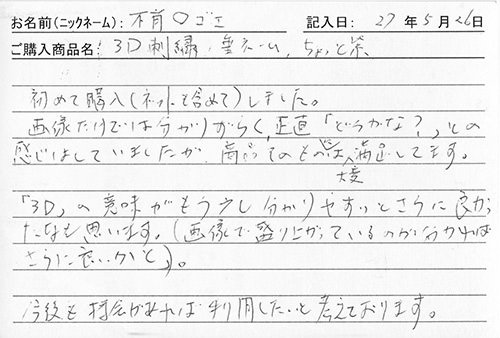 お名前(ニックネーム): 不肖〇ゴエ 記入日: 27年5月26日
ご購入商品名: 3D刺繍・重ネーム、ちょっと余
初めて購入(ネットを含めて)しました。
画像だけでは分かりづらく、正直「どうかな?」との
感じはしていましたが、商品そのものには大変満足してます。
「3D」の意味がもう少し分かりやすいとさらに良かっ
たなと思います。(画像で盛り上がっているのが分かれば
さらに良いかと)。
今後も機会があれば利用したいと考えております。